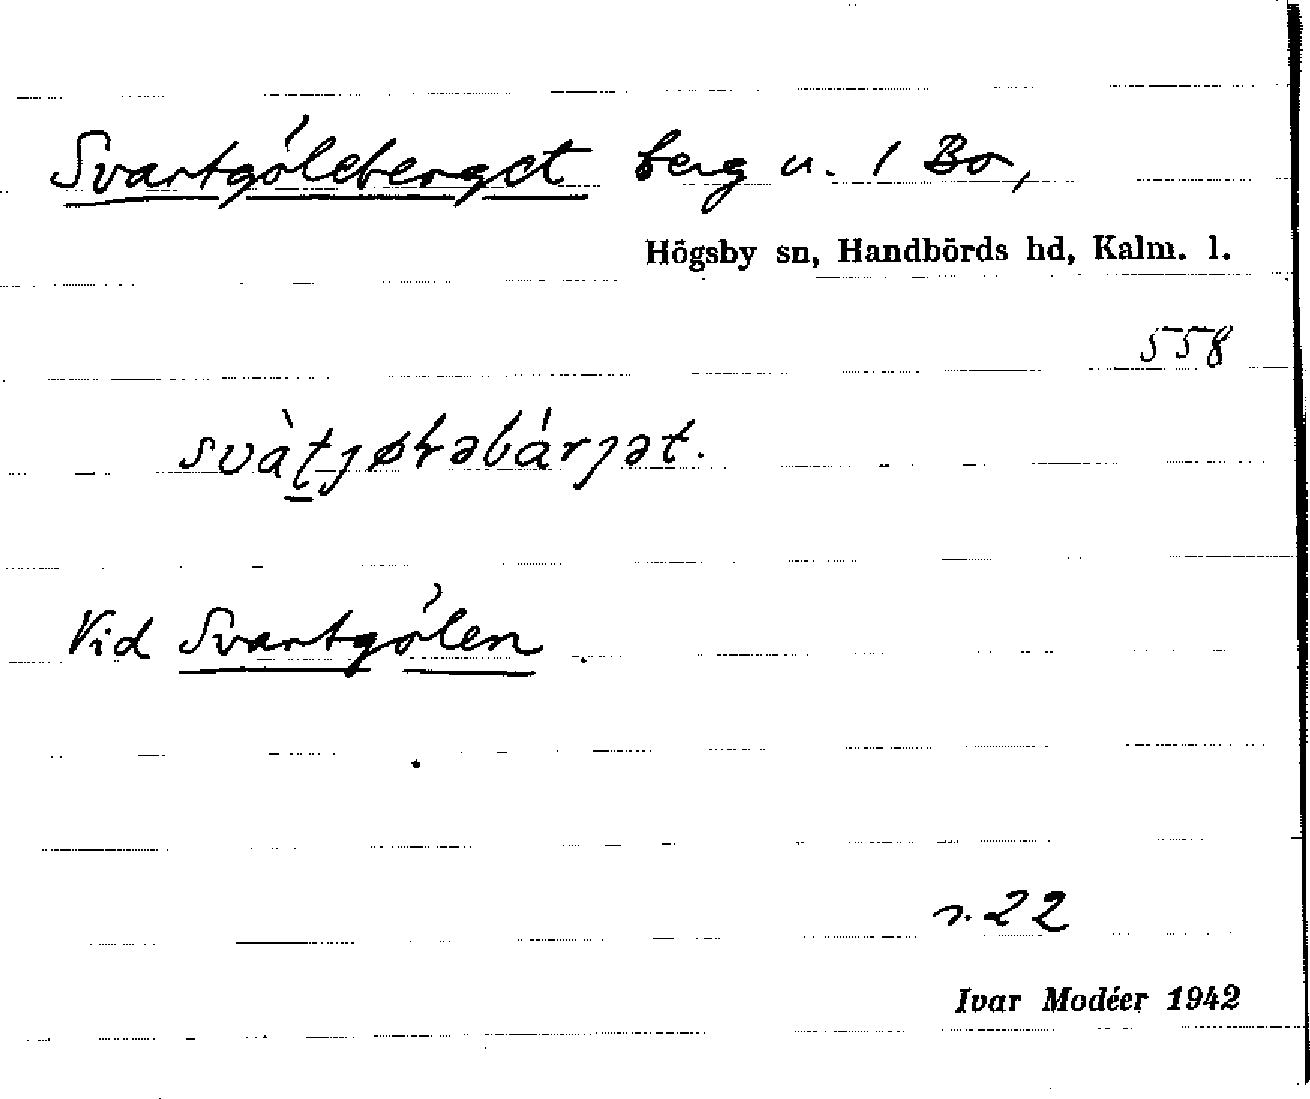 Svartgöleberget berg u. 1 Bo,
Högsby sn, Handbörds hd, Kalm. l.
558
svàt̠ȷøɫəbárȷət.
Vid Svartgölen
s. 22
Ivar Modéer 1942